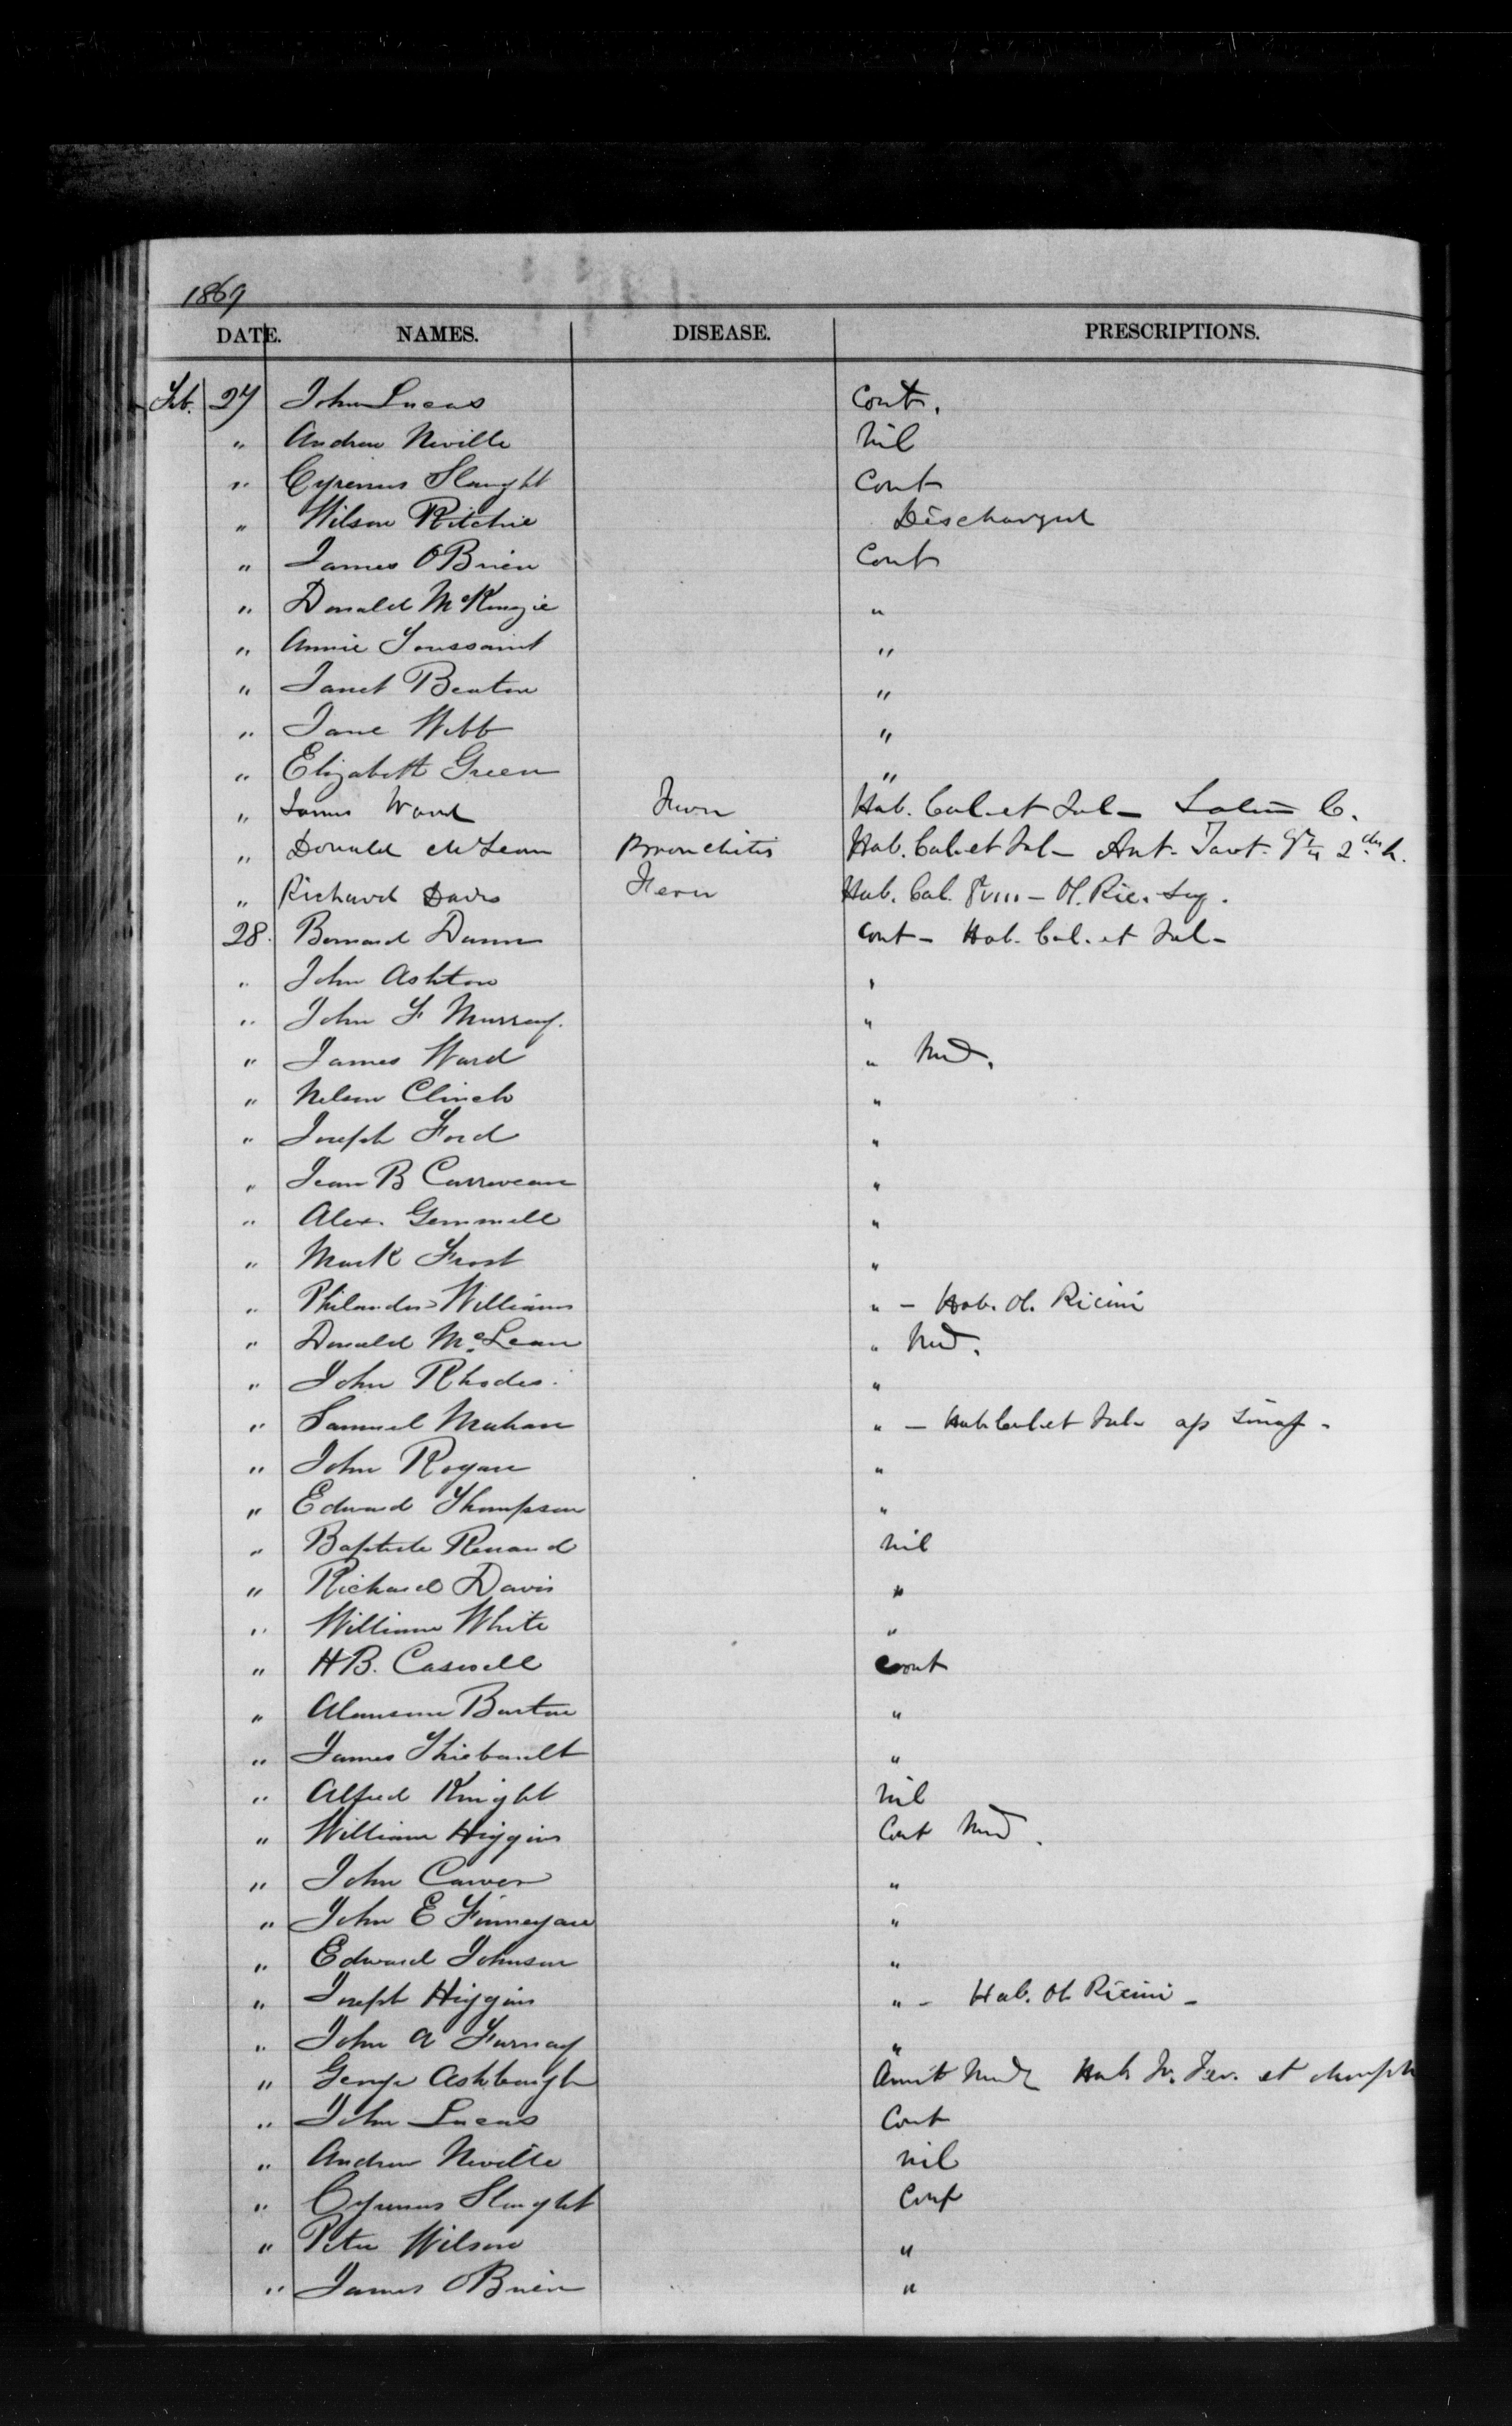 1869
DATE. NAMES. DISEASE. PRESCRIPTIONS.
Feb. 27 John Lucas Cont.
" Andrew Neville Nil
" Cyrenus Slaught Cont
" Wilson Ritchie Discharged
" James O'Brien Cont
" Donald McKenzie "
" Annie Toussaint "
" Janet Beaton "
" Jane Webb "
" Elizabeth Green "
" James Ward Fever Hab. Cal. et Jal - C.
" Donald McLean Bronchitis Hab. Cal. et Jal - Ant. Tart. 2 h.
" Richard Davis Fever Hab. Cal. - Ol. Ric.
28. Bernard Dunn Cont - Hab. Cal. et Jal -
" John Ashton "
" John F Murray. "
" James Ward " Med.
" Nelson Clinch "
" Joseph Ford "
" Jean B Carriveau "
" Alex. Gemmell "
" Mark Frost "
" Philander Williams " - Hab. Ol. Ricini
" Donald McLean " Med.
" John Rhodes. "
" Samuel Mahan " - Hab Cal et Jal - ap Sinap -
" John Rogan "
" Edward Thompson "
" Baptiste Renaud Nil
" Richard Davis "
" William White "
" H B. Caswell Cont
" Alanson Burton "
" James Thiebault "
" Alfred Knight Nil
" William Higgins Cont Med.
" John Carver "
" John E Finnegan "
" Edward Johnson "
" Joseph Higgins " - Hab. Ol. Ricini -
" John A Furnay "
" George Ashbaugh Omit Med Hab et Morph
" John Lucas Cont
" Andrew Neville nil
" Cyrenus Slaught Cont
" Peter Wilson "
" James O'Brien "